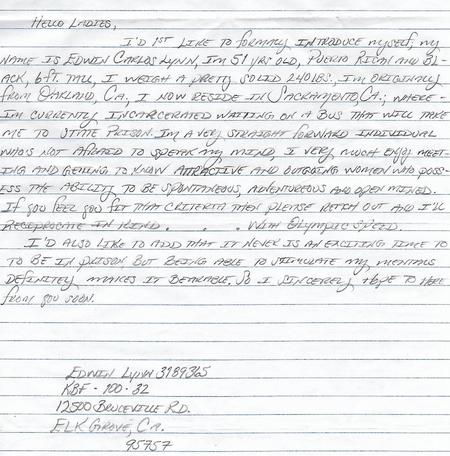 Hello Ladies,
I'd 1st like to formally introduce myself, my
name is Edwin Carlos Lynn, I'm 51 yrs old, Puerto Rican and Bl-
ack, 6ft. tall, I weigh a pretty solid 240lbs., I'm originally
from Oakland, Ca, I now reside in Sacramento, Ca.; where-
I'm currently incarcerated waiting on a bus that will take
me to State Prison. I'm a very straight forward individual
who's not afraid to speak my mind, I very much enjoy meet-
ing and getting to know attractive and outgoing women who poss-
ess the ability to be spontaneous adventureous and open mined.
If you feel you fit that criteria then please retch out and I'll
reciprocate in kind . . . With Olympic speed.
I'd also like to add that it never is an exciting time to
to be in prison, but being able to stimulate my mentals
definitely makes it bearable, So I sincerely hope to here
from you soon.
Edwin Lynn 3189365
KBF - 100 - 32
12500 Bruceville Rd.
Elk Grove, Ca.
95757